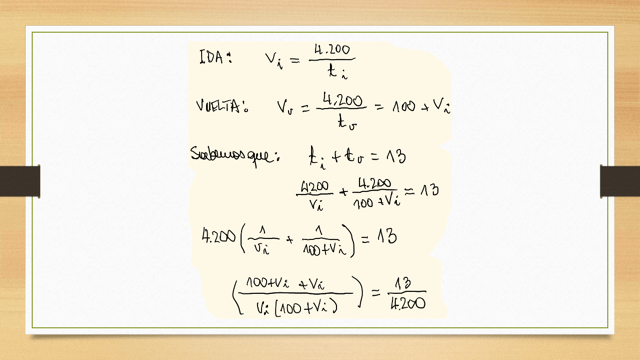 IDA: Vi = 4.200 / ti
VUELTA: Vv = 4.200 / tv = 100 + Vi
Sabemos que: ti + tv = 13
4200 / Vi + 4.200 / 100 + Vi = 13
4.200 ( 1 / Vi + 1 / 100 + Vi ) = 13
( 100 + Vi + Vi / Vi (100 + Vi) ) = 13 / 4.200